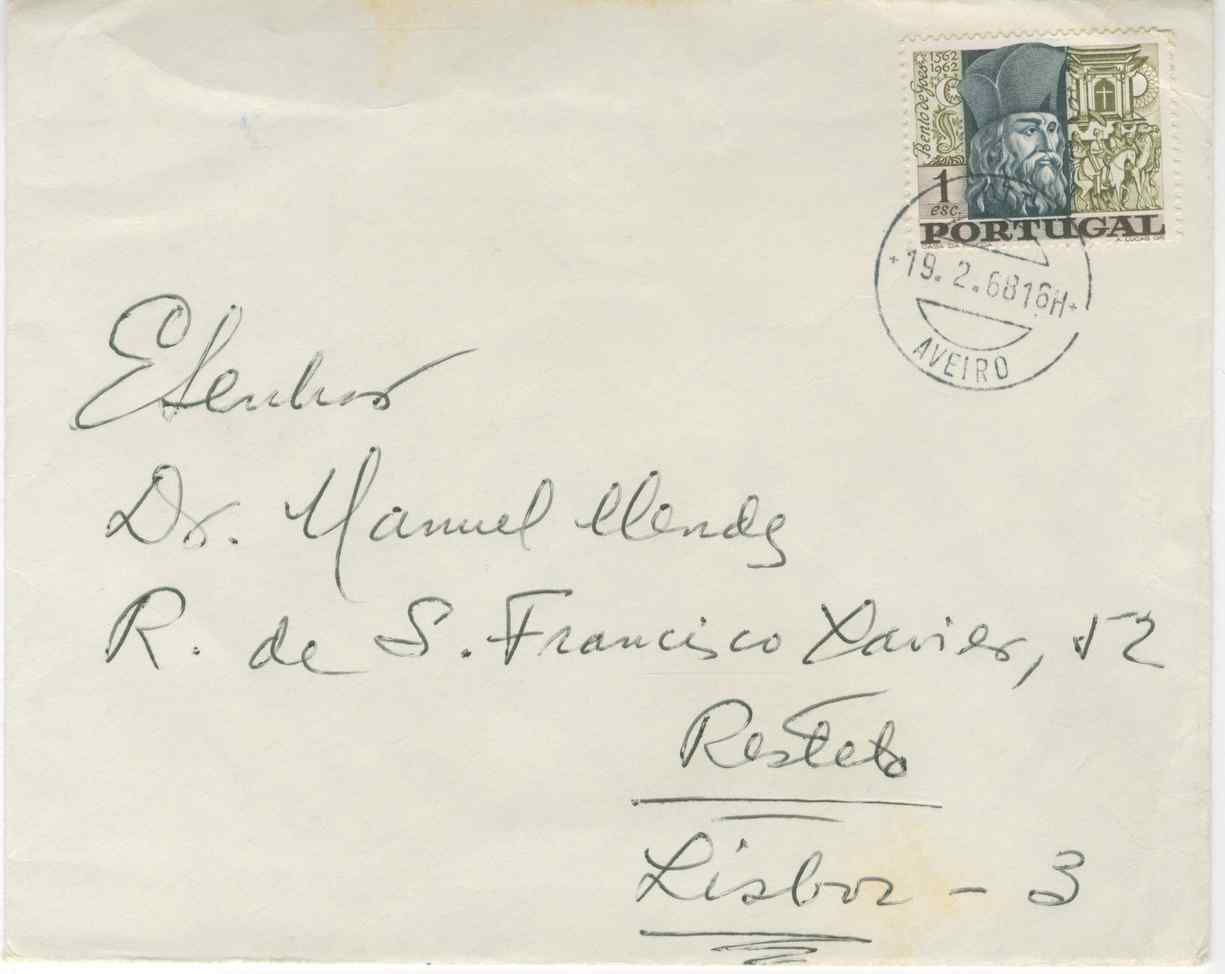 Bento de Goes
1562
1962
1
esc.
PORTUGAL
19.2.68 16H
AVEIRO
ESenhor
Dr. Manuel Mendes
R. de S. Francisco Xavier, 52
Restelo
Lisboa - 3